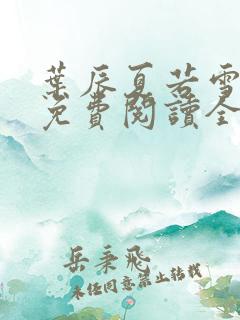 葉辰夏若雪
免費閱讀全
岳秉飛
未经同意禁止转载